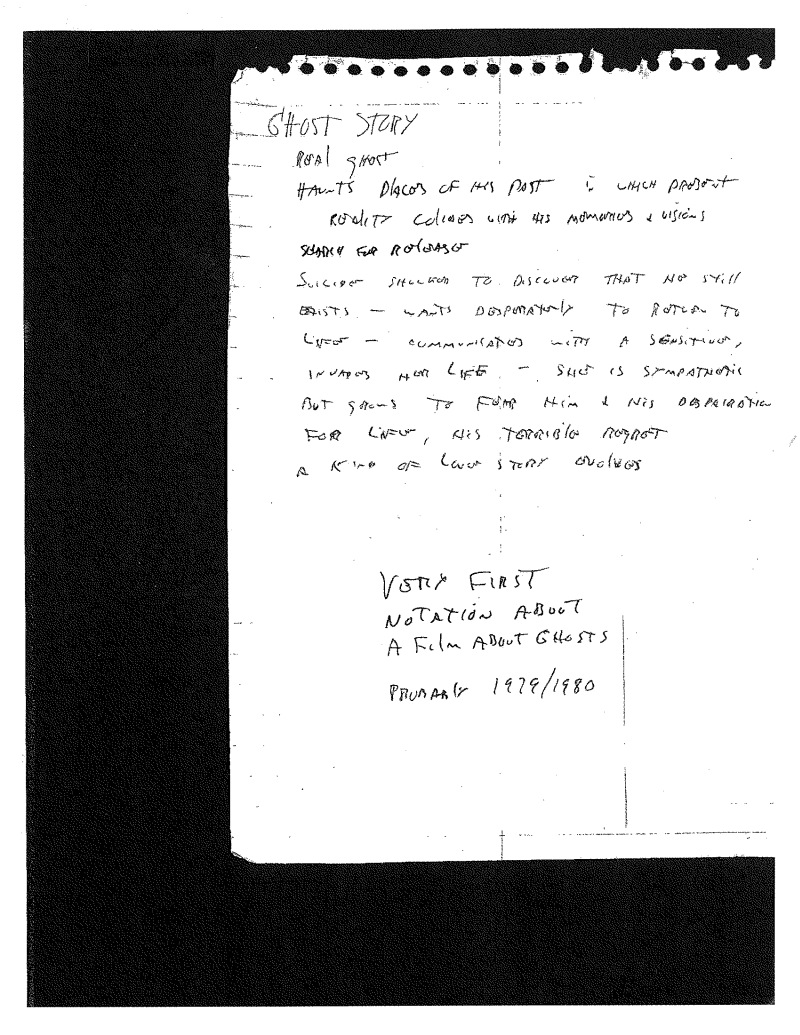 GHOST STORY
REAL GHOST
HAUNTS PLACES OF HIS PAST IN WHICH PRESENT
REALITY COLLIDES WITH HIS MEMORIES & VISIONS
SEARCH FOR RELEASE
SUICIDE SHOCKED TO DISCOVER THAT HE STILL
EXISTS - WANTS DESPERATELY TO RETURN TO
LIFE - COMMUNICATES WITH A SENSITIVE,
INVADES HER LIFE - SHE IS SYMPATHETIC
BUT GROWS TO FEAR HIM & HIS DESPERATION
FOR LIFE, HIS TERRIBLE REGRET
A KIND OF LOVE STORY EVOLVES
VERY FIRST
NOTATION ABOUT
A FILM ABOUT GHOSTS
PROBABLY 1979/1980